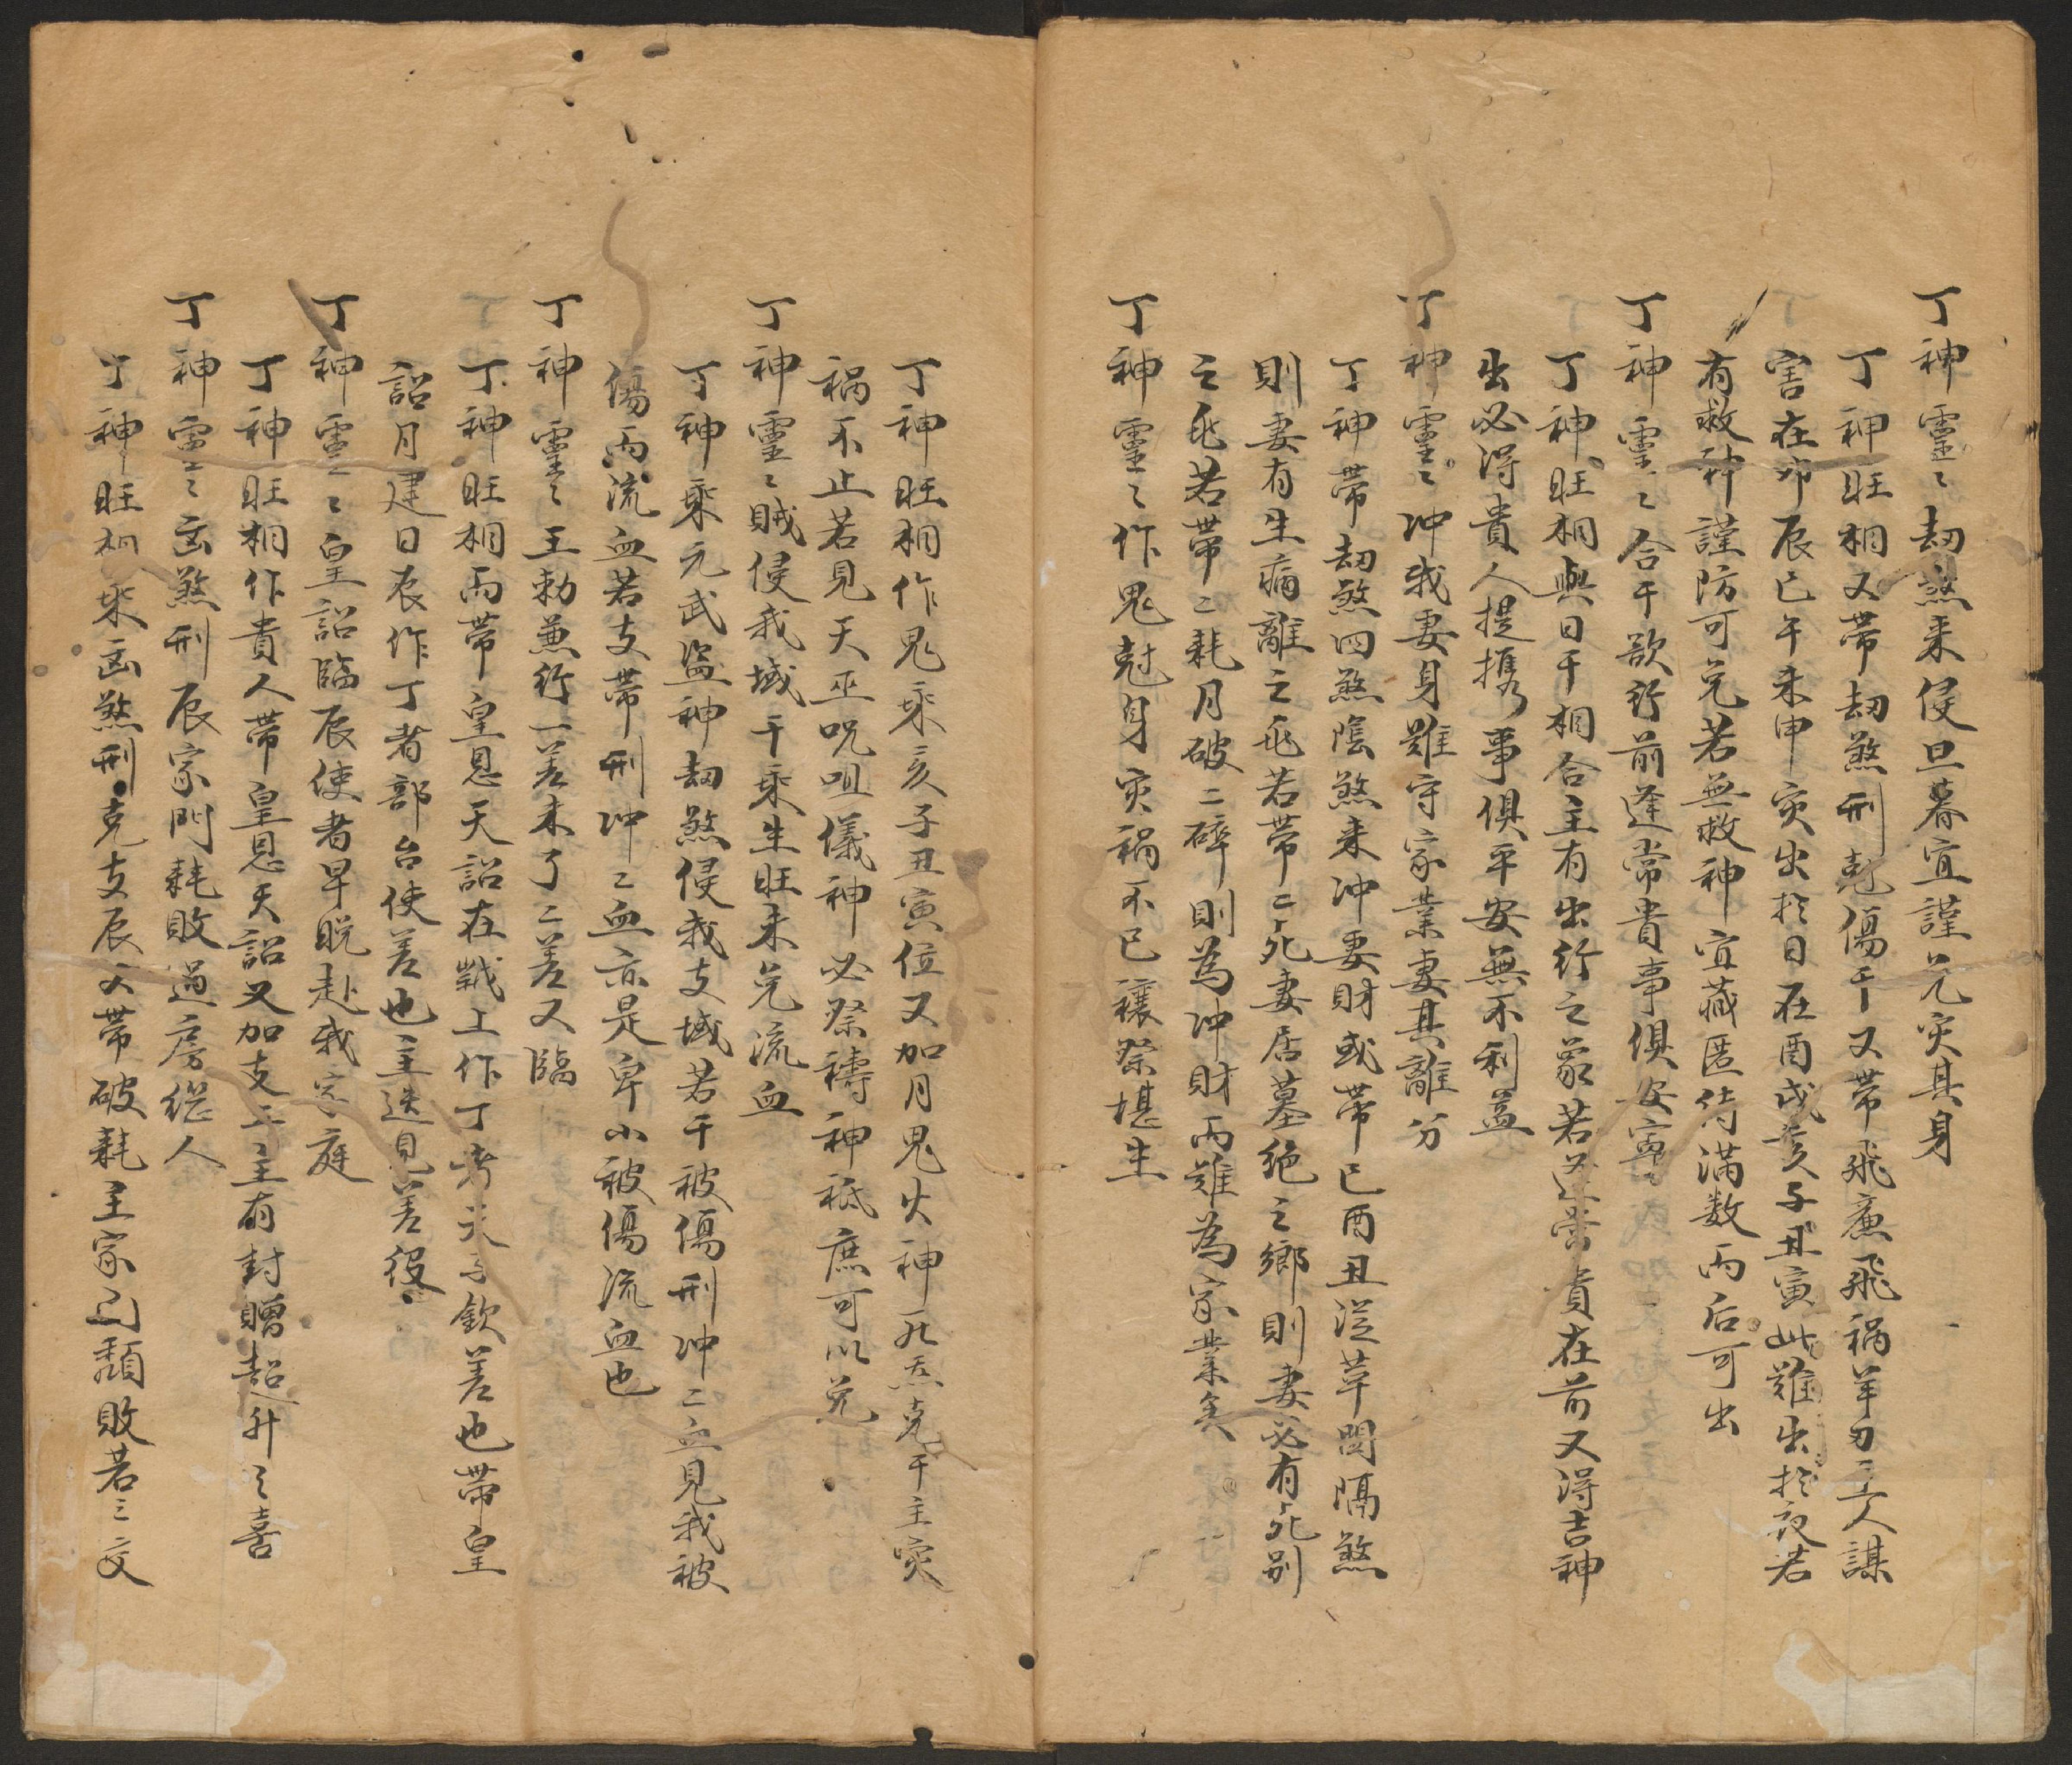 丁神靈〻劫煞来侵旦暮宜謹兄灾其身
丁神旺相又帶劫煞刑尅傷干又帶飛廉飛禍羊刃主人謀
害在卯辰巳午未申灾出於日在酉戌亥子丑寅此難出於夜若
有救神謹防可免若無救神宜藏匿待滿数而后可出
丁神靈〻合干歆行前逢常貴事俱安寧
丁神旺相與日干相合主有出行之象若逢常貴在前又得吉神
出必得貴人提携事俱平安無不利益
丁神靈〻冲我妻身難守家業妻其離分
丁神帶劫煞四煞陰煞来冲妻財或帶巳酉丑從革関隔煞
則妻有生病離之兆若帶二死妻居墓绝之鄉則妻必有死别
之兆若帶二耗月破二碎則為冲財而難為家業矣
丁神靈〻作鬼尅身灾禍不已禳祭堪生
丁神旺相作鬼乘亥子丑寅位又加月鬼火神死炁克干主灾
禍不止若見天巫咒咀儀神必祭禱神祗庶可以免
丁神靈〻賊侵我域干乘生旺未免流血
丁神乘元武盗神劫煞侵我支域若干被傷刑冲二血見我被
傷而流血若支帶刑冲二血亦是卑小被傷流血也
丁神靈〻王勅兼行一差未了二差又臨
丁神旺相而帶皇恩天詔在歲上作丁者天子欽差也帶皇
詔月建日辰作丁者部台使差也主迭見差役
丁神靈〻皇詔臨辰使者早晚赴我家庭
丁神旺相作貴人帶皇恩天詔又加支上主有封贈超升之喜
丁神靈〻凶煞刑辰家門耗敗過房継人
丁神旺相乘凶煞刑克支辰又帶破耗主家門頹敗若三交